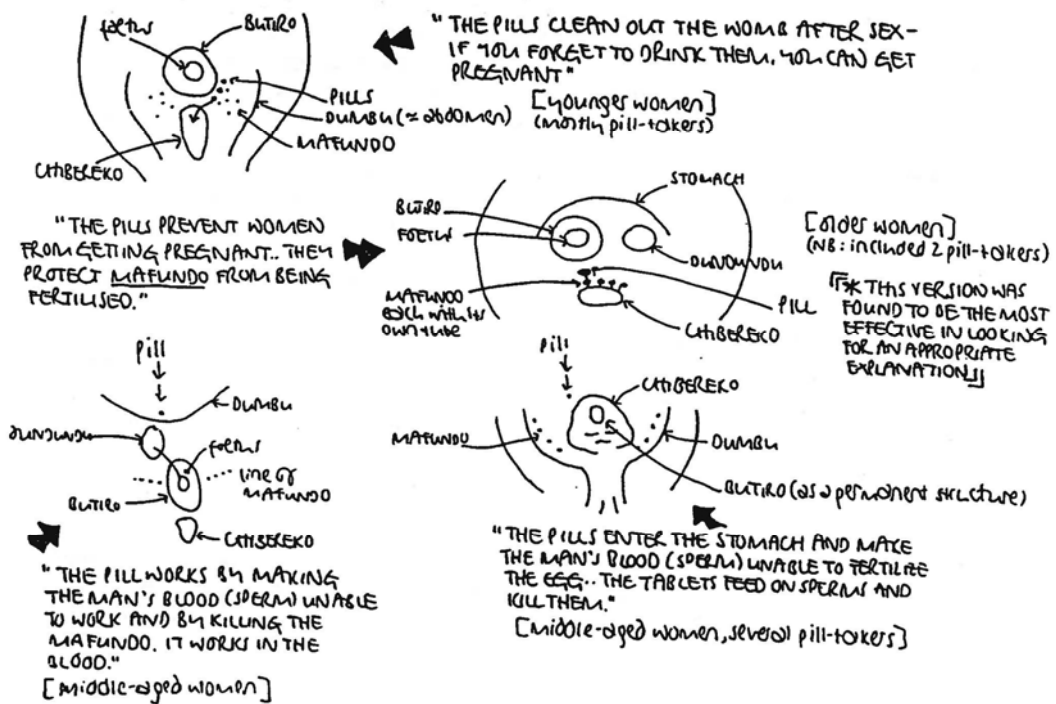 foetus
BUTIRO
PILLS
DUMBU (≈ abdomen)
MAFUNDO
CHIBEREKO
"THE PILLS CLEAN OUT THE WOMB AFTER SEX-
IF YOU FORGET TO DRINK THEM, YOU CAN GET
PREGNANT"
[younger women]
(mostly pill-takers)
"THE PILLS PREVENT WOMEN
FROM GETTING PREGNANT.. THEY
PROTECT MAFUNDO FROM BEING
FERTILISED."
STOMACH
BUTIRO
FOETUS
DUNDUNDU
MAFUNDO
each with its
own tube
PILL
CHIBEREKO
[older women]
(NB: included 2 pill-takers)
[[* THIS VERSION WAS
FOUND TO BE THE MOST
EFFECTIVE IN LOOKING
FOR AN APPROPRIATE
EXPLANATION]]
pill
DUMBU
DUNDUNDU
foetus
line of
MAFUNDO
BUTIRO
CHIBEREKO
"THE PILL WORKS BY MAKING
THE MAN'S BLOOD (SPERM) UNABLE
TO WORK AND BY KILLING THE
MAFUNDO. IT WORKS IN THE
BLOOD."
[middle-aged women]
pill
CHIBEREKO
MAFUNDU
DUMBU
BUTIRO (as a permanent structure)
"THE PILLS ENTER THE STOMACH AND MAKE
THE MAN'S BLOOD (SPERM) UNABLE TO FERTILIZE
THE EGG.. THE TABLETS FEED ON SPERMS AND
KILL THEM."
[middle-aged women, several pill-takers]